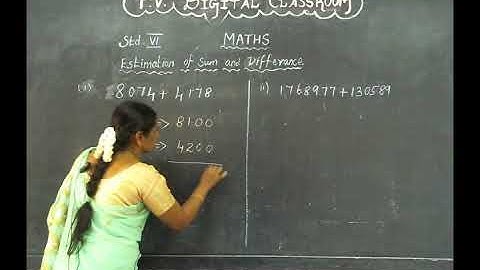 T.V. DIGITAL CLASSROOM
Std. VI MATHS
Estimation of Sum and Difference
8074 + 4178
=> 8100
=> 4200
(i) 1768977 + 130589